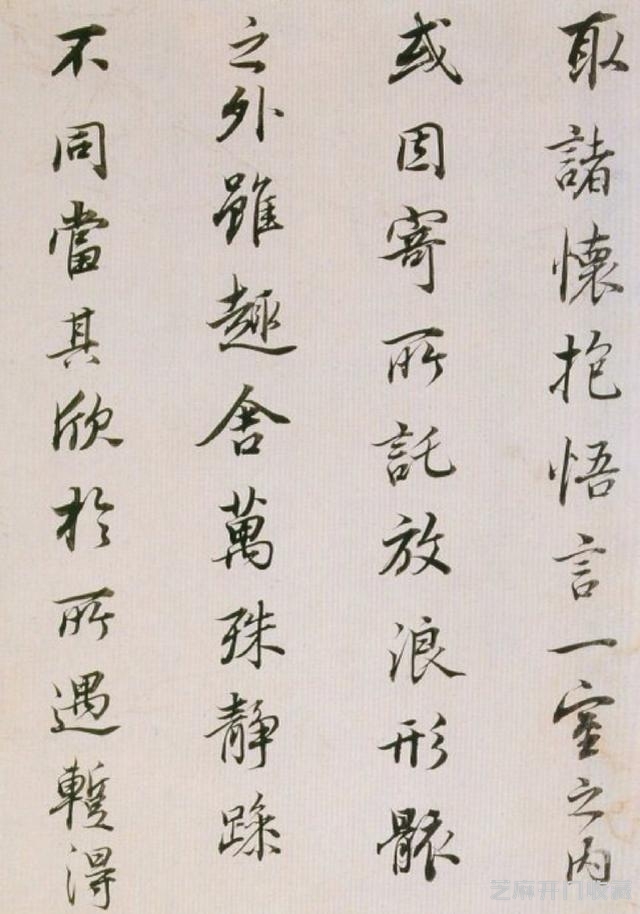 取諸懷抱悟言一室之內
或因寄所託放浪形骸
之外雖趣舍萬殊靜躁
不同當其欣於所遇暫得
芝麻开门收藏